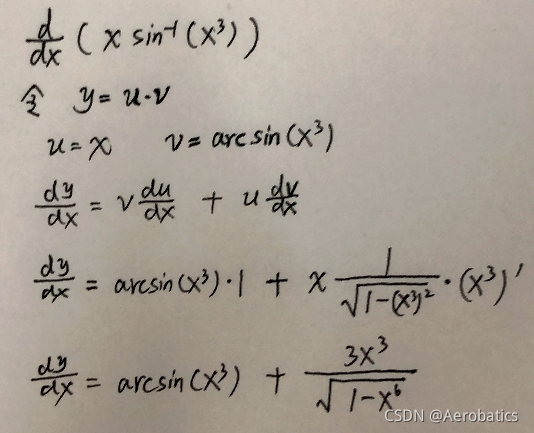 d/dx ( x sin⁻¹ (x³) )
令 y = u·v
u = x v = arc sin(x³)
dy/dx = v du/dx + u dv/dx
dy/dx = arcsin(x³)·1 + x 1/√(1-(x³)²) · (x³)'
dy/dx = arcsin(x³) + 3x³/√(1-x⁶)
CSDN @Aerobatics